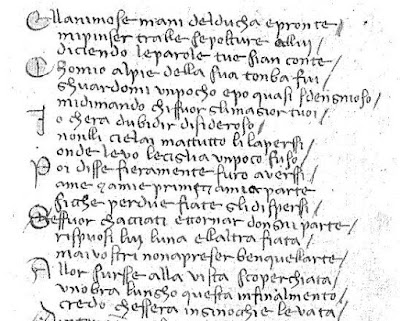 Ellanimose mani delducha epronte /
mipinser tralle sepolture allui /
dicendo leparole tue sian conte /
Chomio alpie della sua tonba fui /
ghuardomi unpocho epo quasi sdengnioso /
midimando chiffuor glimagior tuoi /
Io chera dubidir disideroso /
nonlli cielai mattutto li lapersi /
onde levo leciglia unpoco suso /
Poi disse fieramente furo aversi /
ame & amie primi & amia parte
siche perdue fiate gli dispersi /
Seffuor chacciati ettornar dongni parte /
rispuosi lui luna ellaltra fiata /
mai vostri nonapreser benquellarte /
Allor sursse alla vista scoperchiata /
unobra lungho questa infinalmento /
credo chessera inginochie levata /